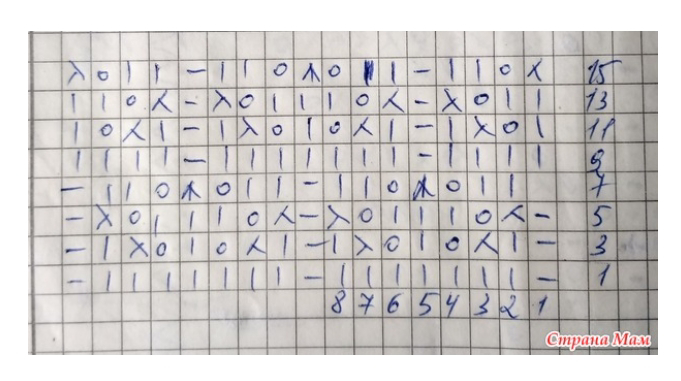 λ o | | – | | o ⋏ o | | – | | o ⋌ 15
| | o ⋌ – λ o | | | o ⋌ – λ o | | 13
| o ⋌ | – | λ o | o ⋌ | – | λ o | 11
| | | | – | | | | | | | – | | | | 9
– | | o ⋏ o | | – | | o ⋏ o | | 7
– λ o | | | o ⋌ – λ o | | | o ⋌ – 5
– | λ o | o ⋌ | – | λ o | o ⋌ | – 3
– | | | | | | | – | | | | | | | – 1
8 7 6 5 4 3 2 1
Страна Мам